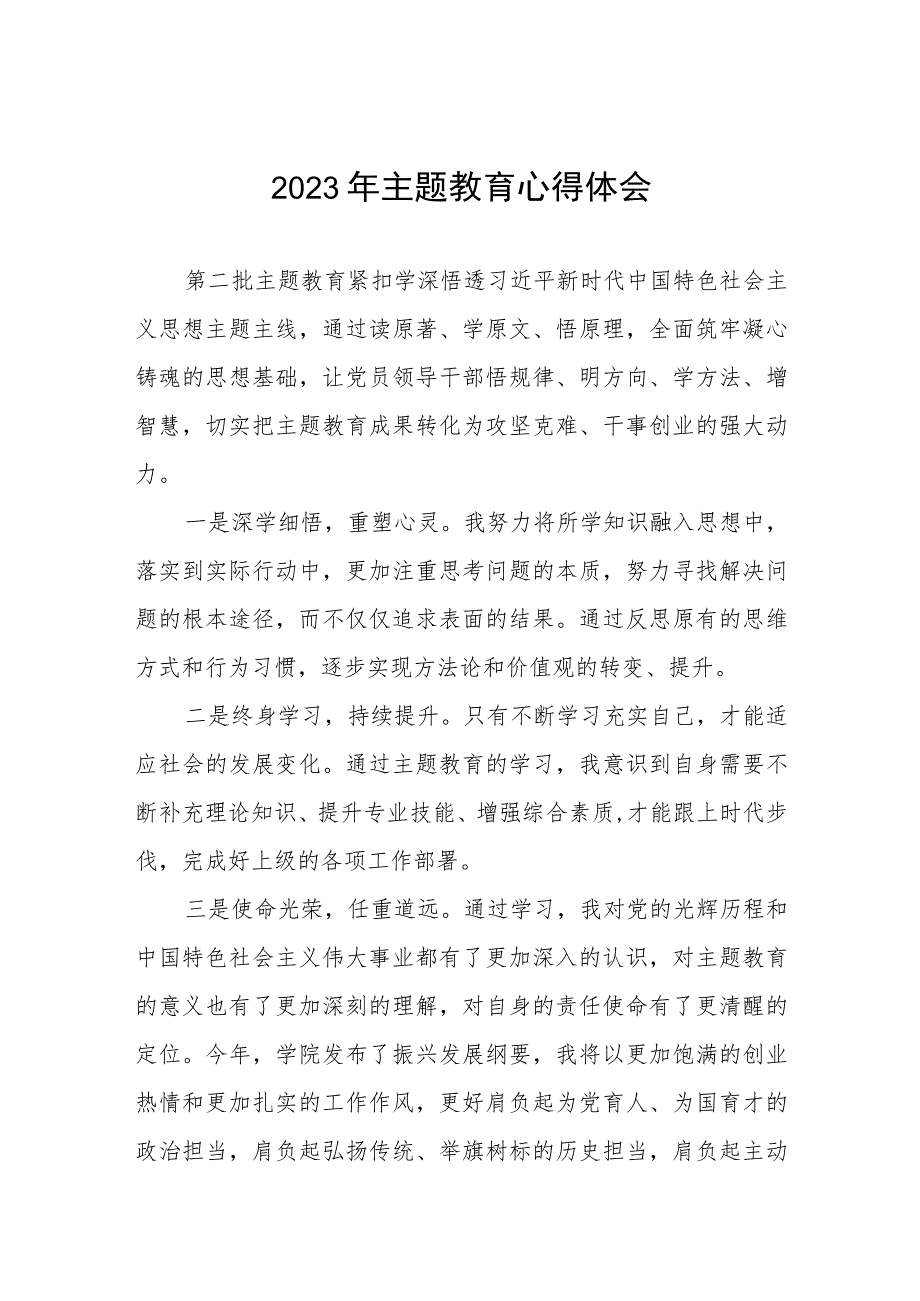 2023年主题教育心得体会
第二批主题教育紧扣学深悟透习近平新时代中国特色社会主
义思想主题主线，通过读原著、学原文、悟原理，全面筑牢凝心
铸魂的思想基础，让党员领导干部悟规律、明方向、学方法、增
智慧，切实把主题教育成果转化为攻坚克难、干事创业的强大动
力。
一是深学细悟，重塑心灵。我努力将所学知识融入思想中，
落实到实际行动中，更加注重思考问题的本质，努力寻找解决问
题的根本途径，而不仅仅追求表面的结果。通过反思原有的思维
方式和行为习惯，逐步实现方法论和价值观的转变、提升。
二是终身学习，持续提升。只有不断学习充实自己，才能适
应社会的发展变化。通过主题教育的学习，我意识到自身需要不
断补充理论知识、提升专业技能、增强综合素质,才能跟上时代步
伐，完成好上级的各项工作部署。
三是使命光荣，任重道远。通过学习，我对党的光辉历程和
中国特色社会主义伟大事业都有了更加深入的认识，对主题教育
的意义也有了更加深刻的理解，对自身的责任使命有了更清醒的
定位。今年，学院发布了振兴发展纲要，我将以更加饱满的创业
热情和更加扎实的工作作风，更好肩负起为党育人、为国育才的
政治担当，肩负起弘扬传统、举旗树标的历史担当，肩负起主动